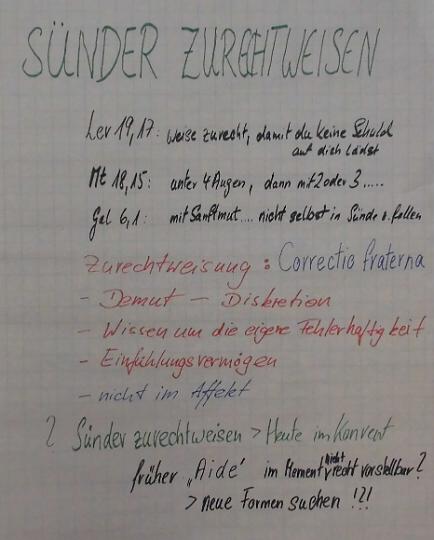 SÜNDER ZURECHTWEISEN
Lev 19,17: weise zurecht, damit du keine Schuld
auf dich lädst
Mt 18,15: unter 4 Augen, dann mit 2 oder 3.....
Gal 6,1: mit Sanftmut.... nicht selbst in Sünde z. fallen
Zurechtweisung: Correctio fraterna
- Demut - Diskretion
- Wissen um die eigene Fehlerhaftigkeit
- Einfühlungsvermögen
- nicht im Affekt
? Sünder zurechtweisen > Heute im Konvent
früher "Aide" im Moment nicht recht vorstellbar?
> neue Formen suchen !?!